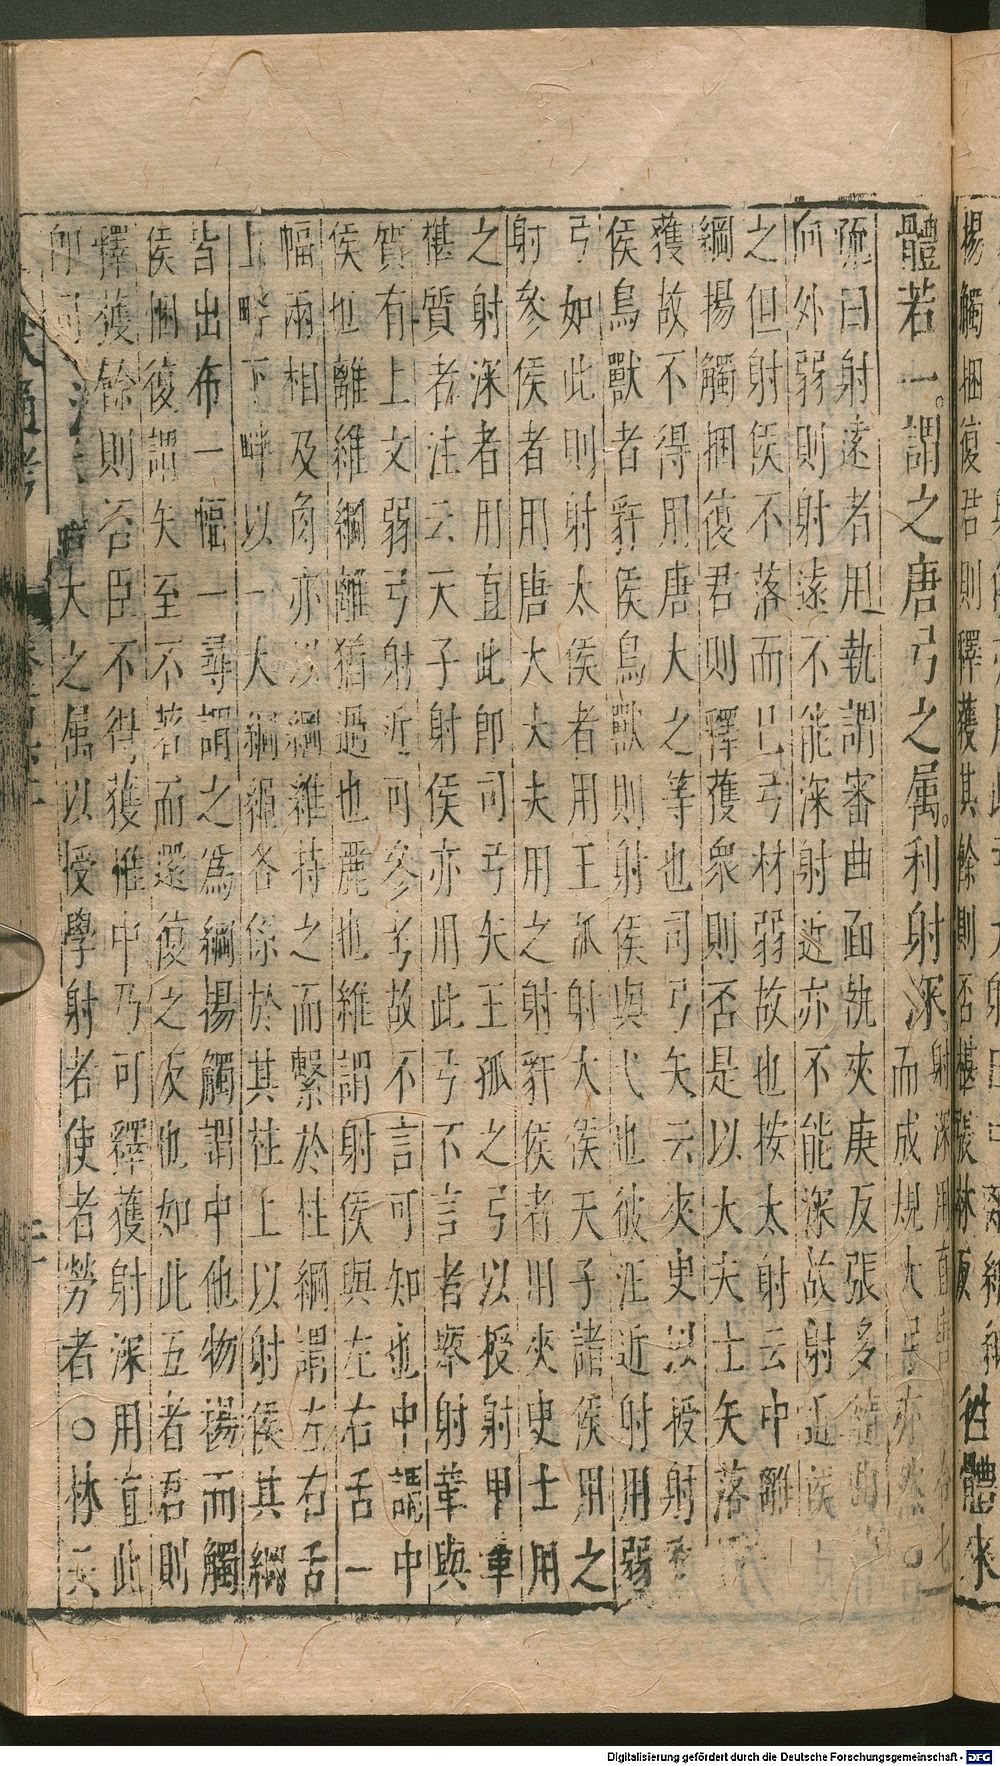 體若一謂之唐弓之屬利射深射深用直
而成規大弓亦然○
疏曰射遠者用埶謂審曲面埶夾庾反張多
向外弱則射遠不能深射近亦不能深故射近侯
之但射侯不落而已弓材弱故也按太射云中離
綱揚觸捆復君則釋獲衆則否是以大夫士矢落
獲故不得用唐大之等也司弓矢云夾史以授射
侯鳥獸者豻侯鳥獸則射侯與弋也彼注近射用弱
弓如此則射太侯者用王弧射大侯天子諸侯用之
射參侯者用唐大大夫用之射豻侯者用夾史士用
之射深者用直此卽司弓矢王孤之弓以授射甲革
椹質者注云天子射侯亦用此弓不言者察射革與
質有上文弱弓射近可參考故不言可知也中謂中
侯也離維綱離猶過也麗也維謂射侯與左右舌一
幅兩相及角亦以綱維持之而繫於柱綱謂左右舌
上畔下畔以一大綱繩各係於其柱上以射侯其綱
皆出布一幅一尋謂之爲綱揚觸謂中他物揚而觸
侯捆復謂矢至不著而還復之反也如此五者君則
釋獲餘則否臣不得獲惟中乃可釋獲射深用直此
卽司
唐大之屬以授學射者使者勞者○林氏
揚觸捆復君則釋獲其餘則否椹張林反
往體來
Digitalisierung gefördert durch die Deutsche Forschungsgemeinschaft - DFG